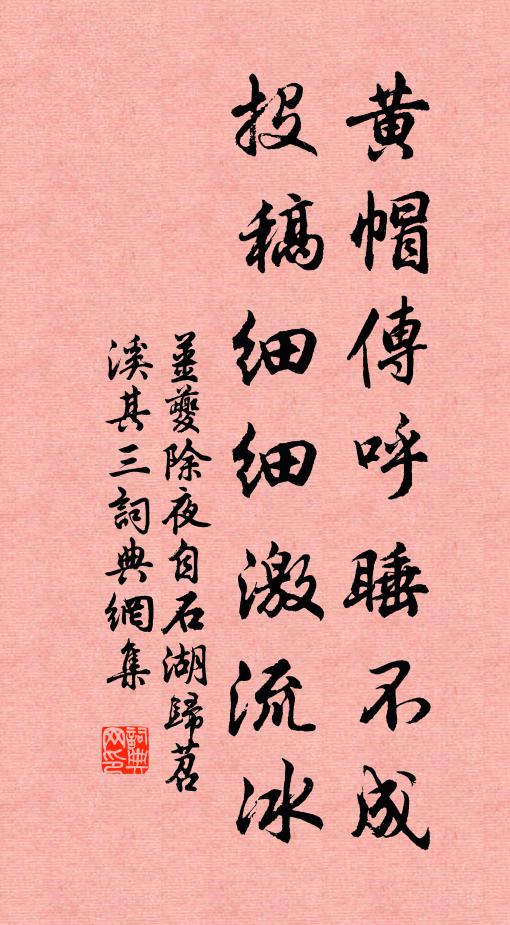 黄帽傳呼睡不成
投稿細細激流冰
薑夔除夜自石湖歸苕
溪其三詞典網集
詞典
网印